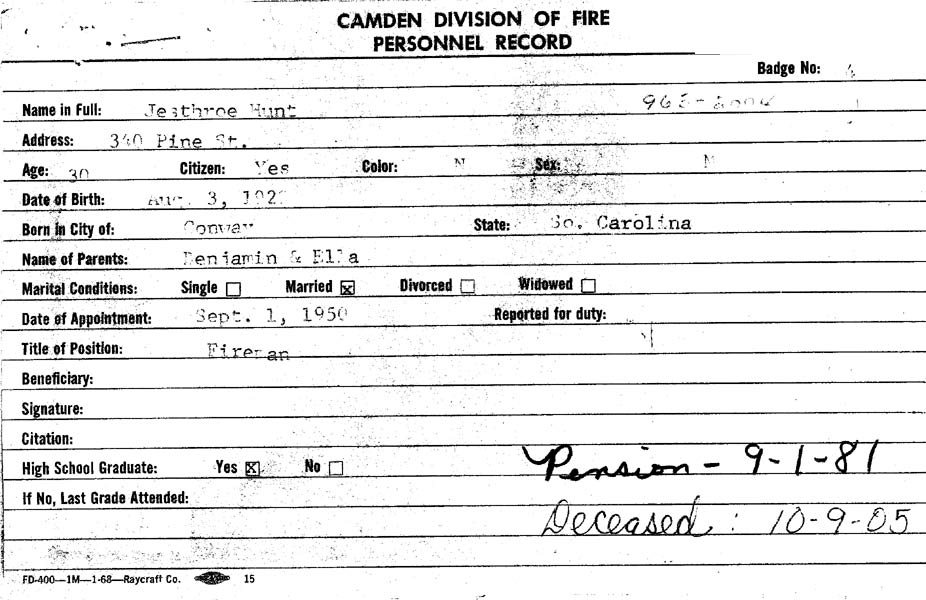 CAMDEN DIVISION OF FIRE
PERSONNEL RECORD
Badge No:
Name in Full: Jesthroe Hunt
Address: 340 Pine St.
Age: 30 Citizen: Yes Color: N Sex: M
Date of Birth: Aug. 3, 192
Born in City of: Conway State: So. Carolina
Name of Parents: Benjamin & Ella
Marital Conditions: Single ☐ Married ☒ Divorced ☐ Widowed ☐
Date of Appointment: Sept. 1, 1950 Reported for duty:
Title of Position: Fireman
Beneficiary:
Signature:
Citation:
High School Graduate: Yes ☒ No ☐
Pension - 9-1-81
If No, Last Grade Attended:
Deceased: 10-9-05
FD-400—1M—1-68—Raycraft Co. 15